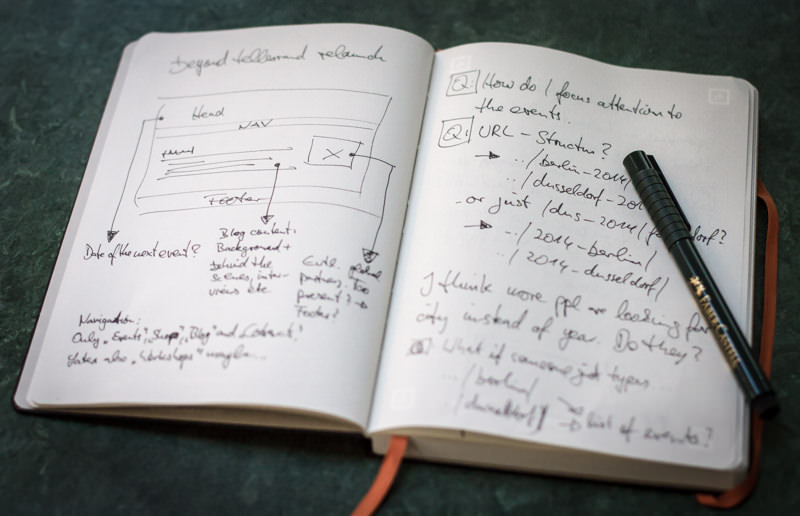 beyond tellerrand relaunch
Head
NAV
Footer
Date of the next event?
Blog content:
Background +
behind the
scenes, inter-
views etc
Evtl. global
partners, too
present? →
Footer?
Navigation:
Only „Events", „Shop", „Blog" and „Contact"?
Later also „Workshops" maybe.
Q: How do I focus attention to
the events.
Q: URL-Structur?
→ ../berlin-2014/
../dusseldorf-201
- or just /dus-2014/ dorf?
→ ../2014-berlin/
../2014-dusseldorf/
I think more ppl are looking for
city instead of year. Do they?
Q: What if someone just types..
../berlin/
../dusseldorf/ → list of events?
FABER-CASTELL